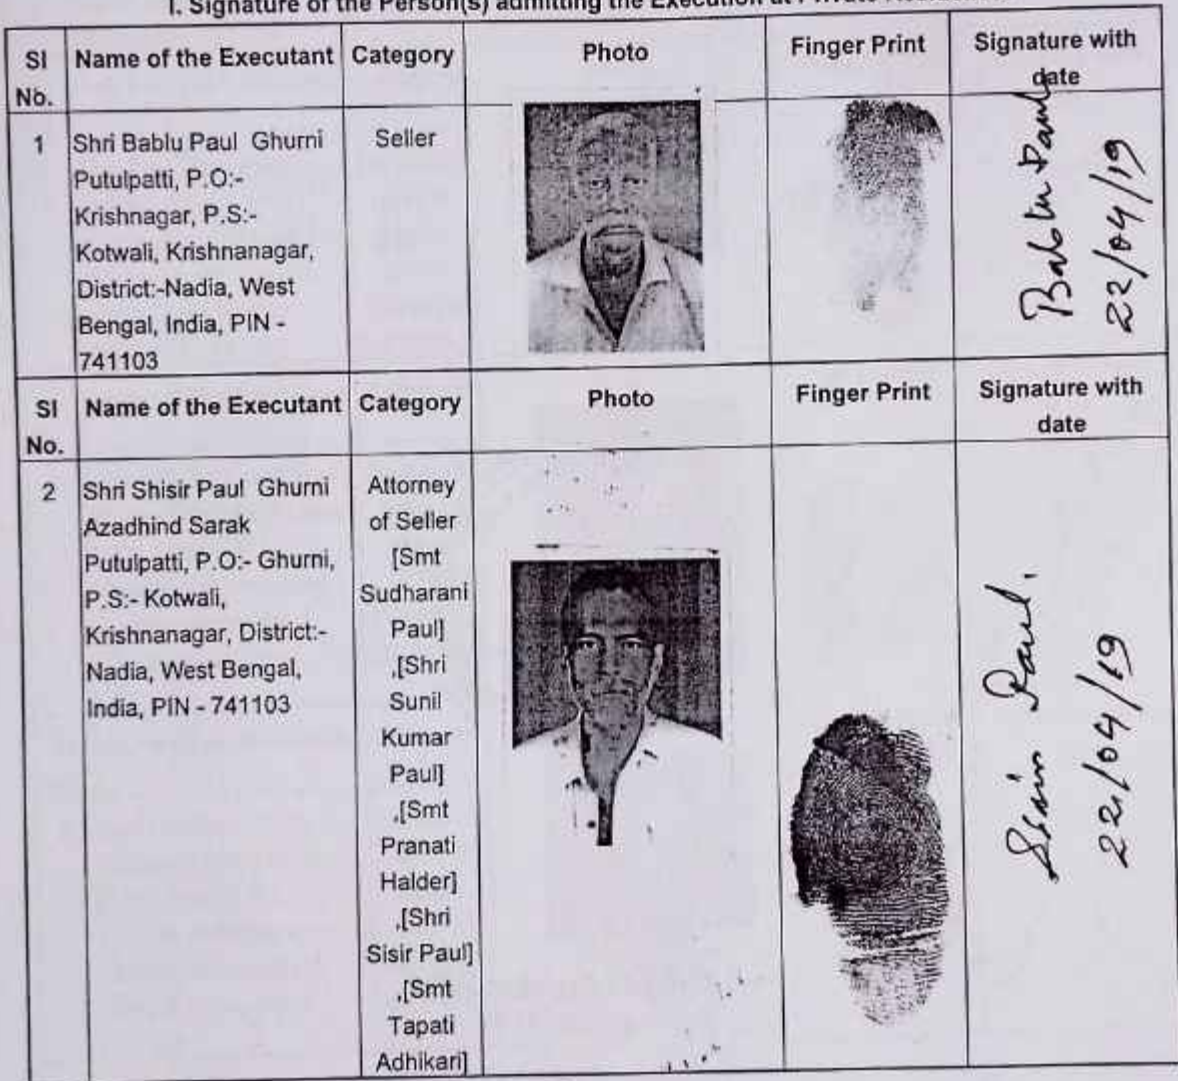 I. Signature of the Person(s) admitting the Execution at Private
Sl No. Name of the Executant Category Photo Finger Print Signature with date
1 Shri Bablu Paul Ghurni
Putulpatti, P.O:-
Krishnagar, P.S:-
Kotwali, Krishnanagar,
District:-Nadia, West
Bengal, India, PIN -
741103
Seller
Bablu Paul
22/04/19
Sl No. Name of the Executant Category Photo Finger Print Signature with date
2 Shri Shisir Paul Ghurni
Azadhind Sarak
Putulpatti, P.O:- Ghurni,
P.S:- Kotwali,
Krishnanagar, District:-
Nadia, West Bengal,
India, PIN - 741103
Attorney
of Seller
[Smt
Sudharani
Paul]
,[Shri
Sunil
Kumar
Paul]
,[Smt
Pranati
Halder]
,[Shri
Sisir Paul]
,[Smt
Tapati
Adhikari]
Paul.
22/04/19